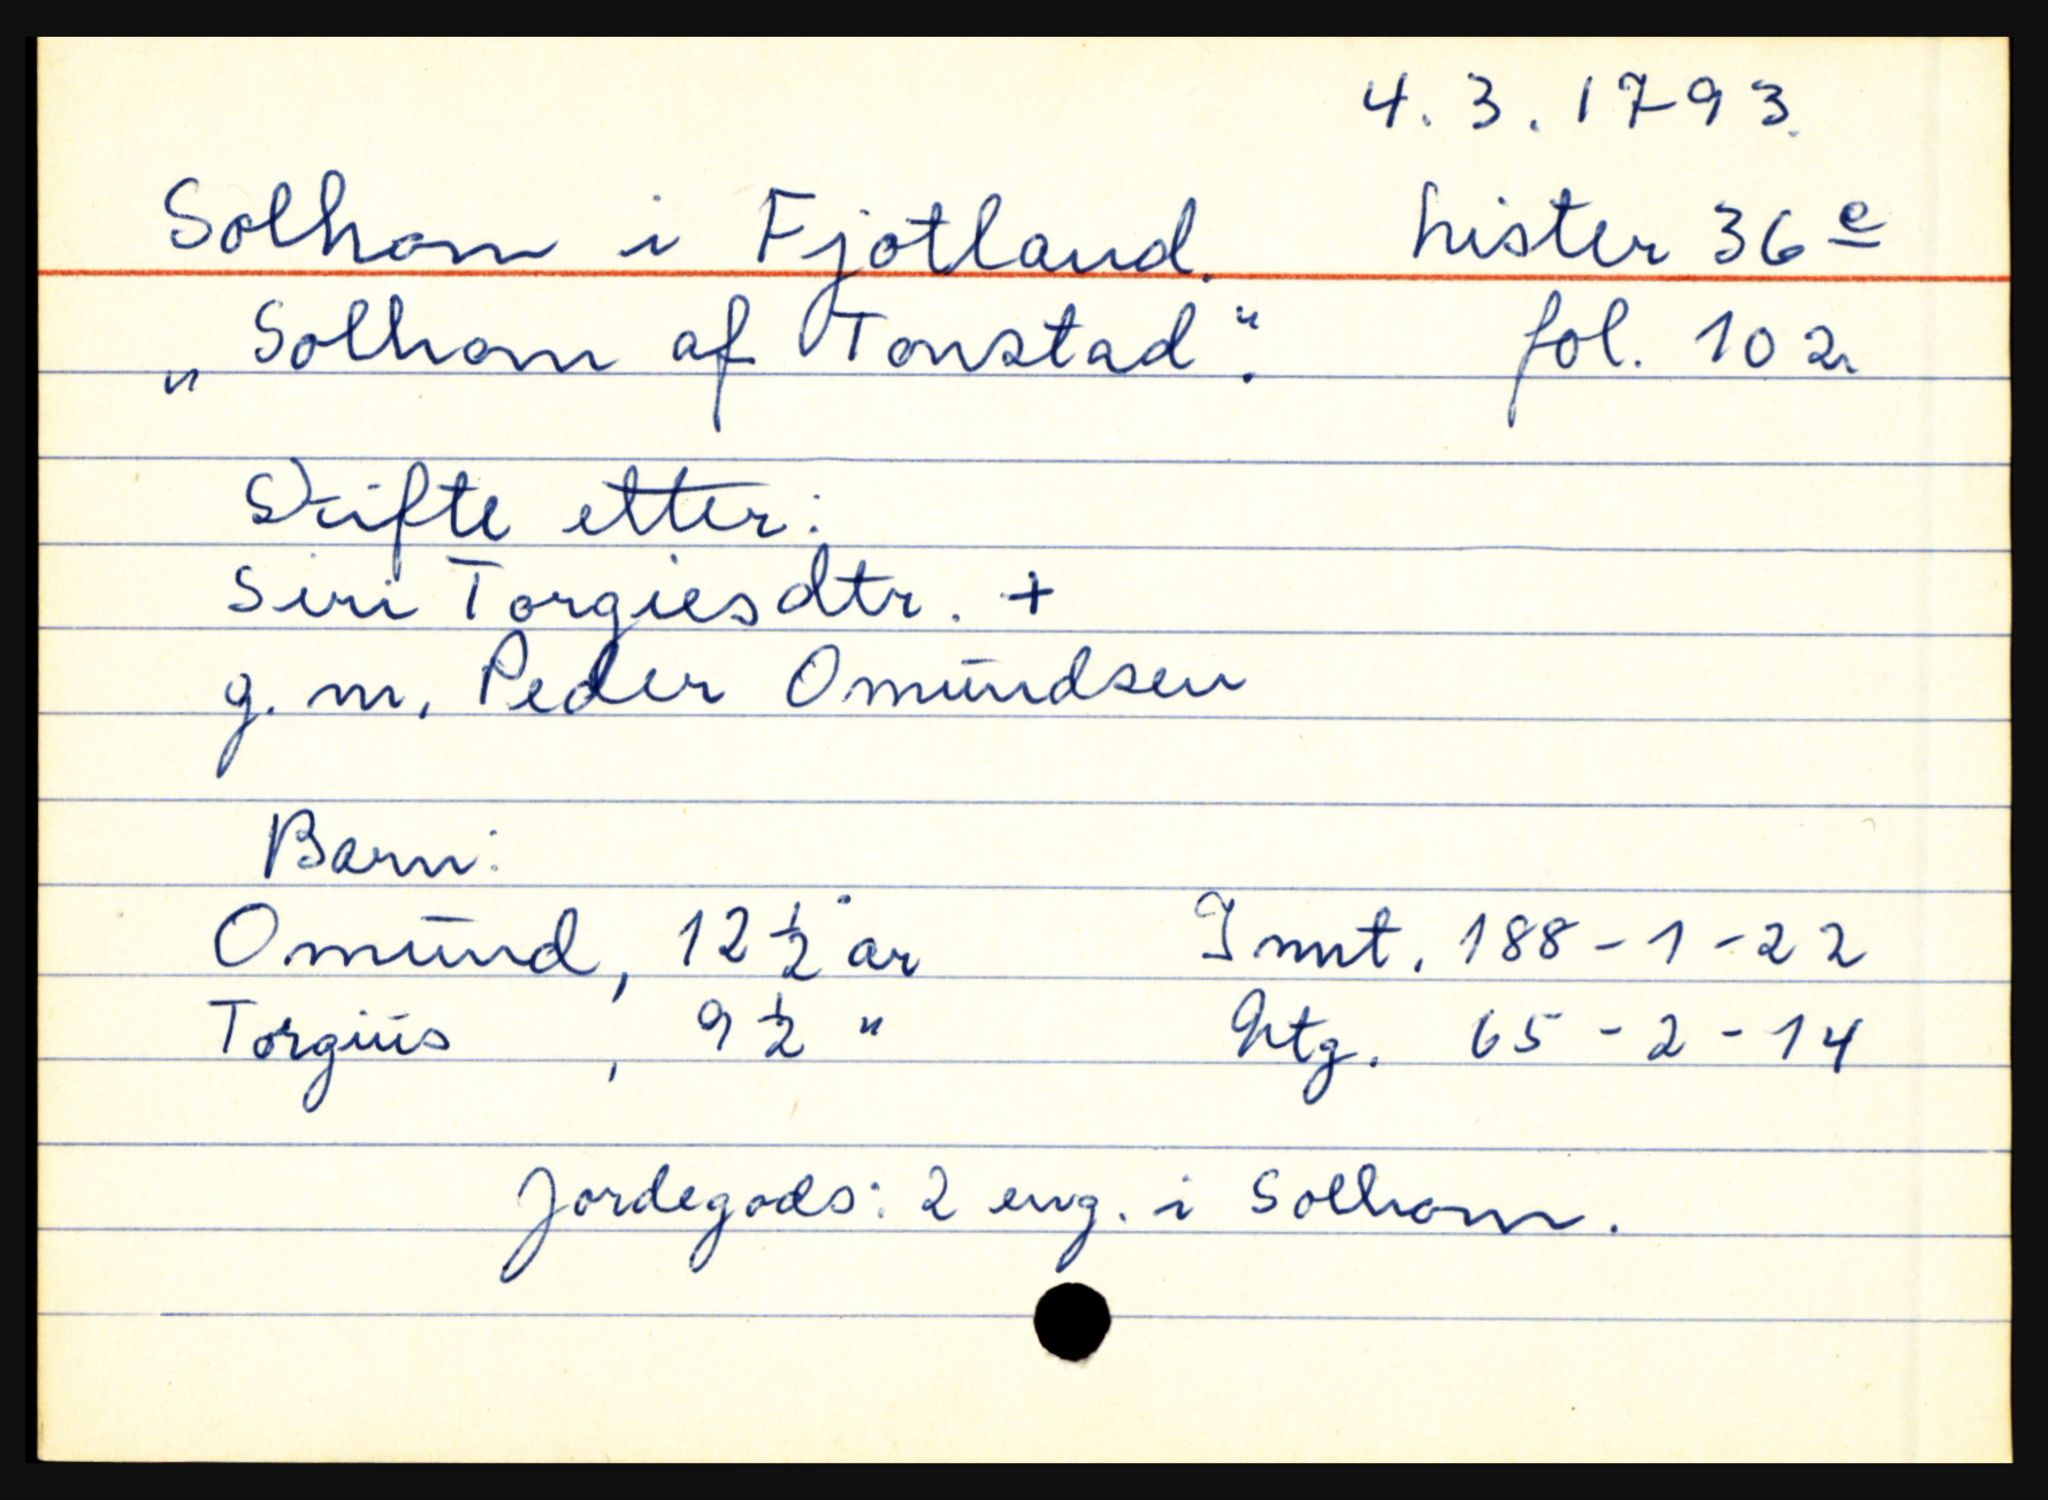 4.3.1793.
Solhom i Fjotland. Lister 36 e
"Solhom af Tonstad". fol. 102
Skifte etter:
Siri Torgiesdtr. +
g. m. Peder Omundsen
Barn:
Omund, 12 1/2 år Innt. 188-1-22
Torgius, 9 1/2 " Utg. 65-2-14
Jordegods: 2 eng. i Solhom.